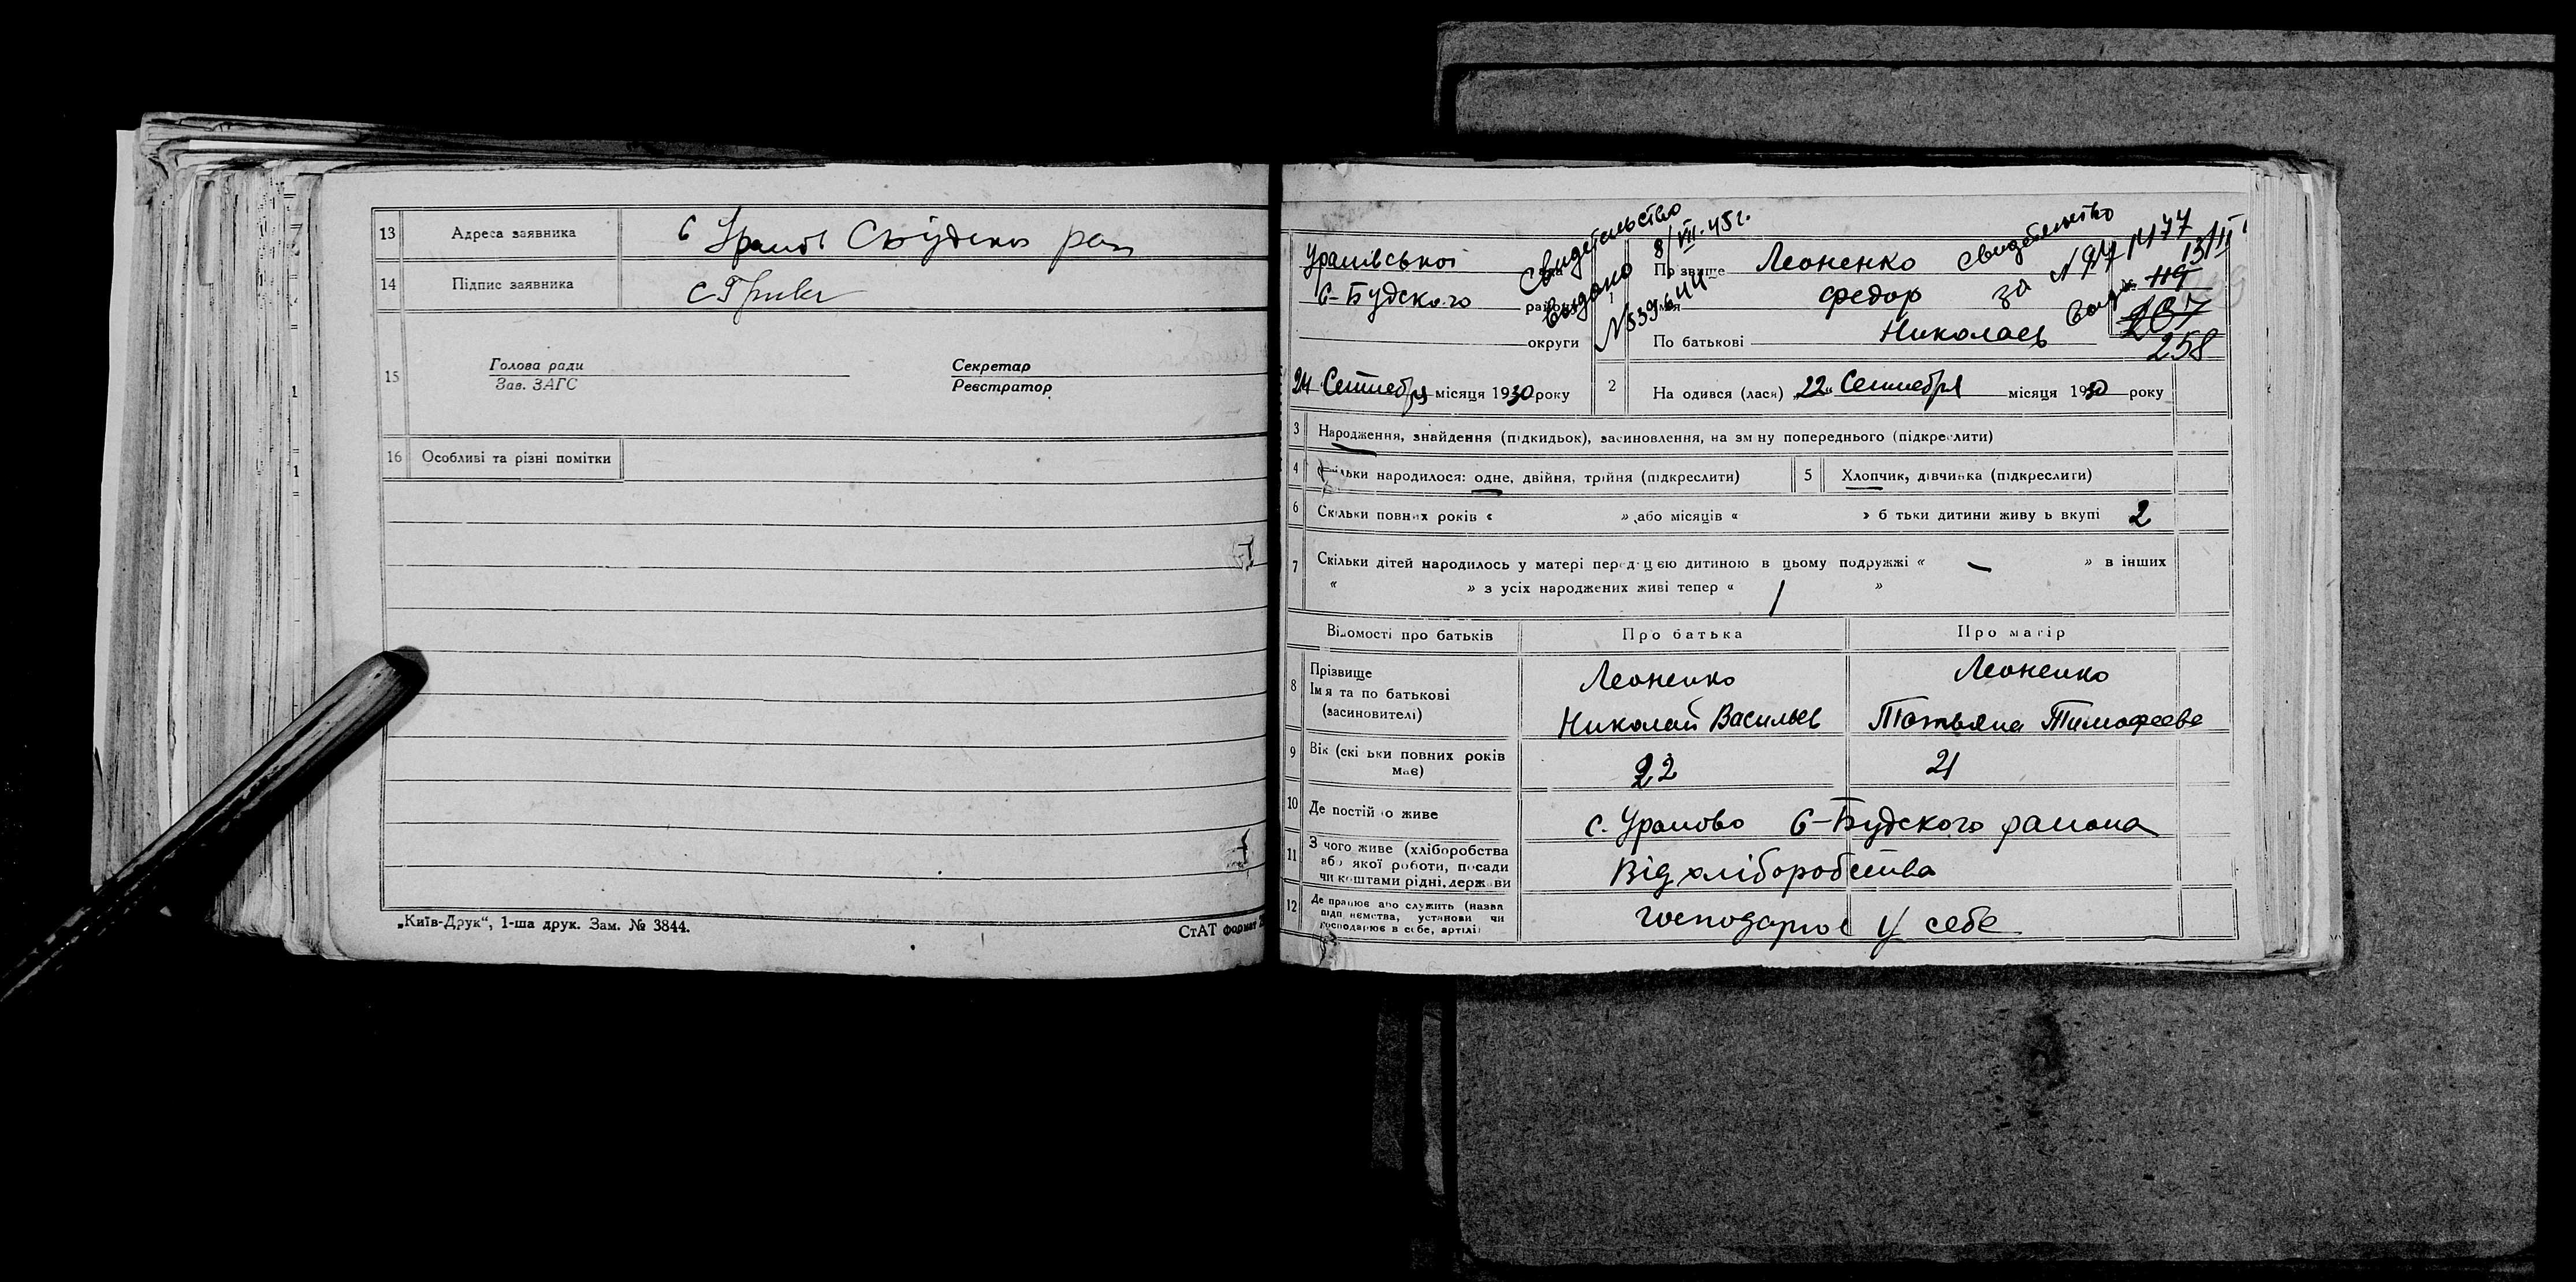 13 Адреса заявника с Урамов Сбудско рай
14 Підпис заявника
15 Голова ради Секретар
Зав. ЗАГС Реєстратор
16 Особливі та різні помітки
„Київ-Друк“, 1-ша друк. Зам. № 3844.
СтАТ формат
Свидетельство
выдано 8/VII-45 г.
Свидетельство
за
Прізвище Леоненко
С-Будского району Федор
округи По батькові Николаев
258
24 Сентября місяця 1930 року 2 На одився (лася) „22“ Сентября місяця 1930 року
3 Народження, знайдення (підкидьок), засиновлення, на зм ну попереднього (підкреслити)
4 Скільки народилося: одне, двійня, трійня (підкреслити) 5 Хлопчик, дівчинка (підкреслити)
6 Скільки повних років « » або місяців « » б тьки дитини живу ь вкупі 2
7 Скільки дітей народилось у матері перед цією дитиною в цьому подружжі « — » в інших
« » з усіх народжених живі тепер « 1 »
Відомості про батьків Про батька Про матір
8 Прізвище Леоненко Леоненко
Імя та по батькові
(засиновителі) Николай Васильев Татьяна Тимофеева
9 Вік (скі ьки повних років
має) 22 21
10 Де постій о живе с. Урамово С-Будского района
11 З чого живе (хліборобства
або якої роботи, посади
чи коштами рідні, держави Від хліборобства
12 Де працює або служить (назва
підп иємства, установи чи
господарює в себе, артілі) господарює у себе